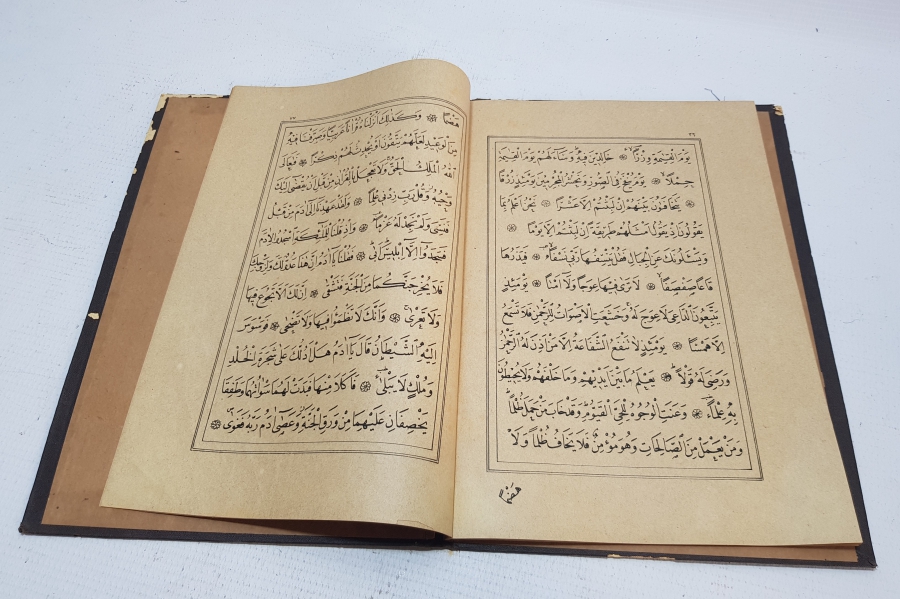 ٢٦
يَوْمَ الْقِيٰمَةِ وِزْرًاۙ ۞ خَالِدِينَ فِيهِۜ وَسَٓاءَ لَهُمْ يَوْمَ الْقِيٰمَةِ
حِمْلًاۙ ۞ يَوْمَ يُنْفَخُ فِي الصُّورِ وَنَحْشُرُ الْمُجْرِمِينَ يَوْمَئِذٍ زُرْقًا
۞ يَتَخَافَتُونَ بَيْنَهُمْ اِنْ لَبِثْتُمْ اِلَّا عَشْرًا ۞ نَحْنُ اَعْلَمُ بِمَا
يَقُولُونَ اِذْ يَقُولُ اَمْثَلُهُمْ طَرِيقَةً اِنْ لَبِثْتُمْ اِلَّا يَوْمًا ۞
وَيَسْـَٔلُونَكَ عَنِ الْجِبَالِ فَقُلْ يَنْسِفُهَا رَبِّي نَسْفًاۙ ۞ فَيَذَرُهَا
قَاعًا صَفْصَفًاۙ ۞ لَا تَرٰى فِيهَا عِوَجًا وَلَٓا اَمْتًا ۞ يَوْمَئِذٍ
يَتَّبِعُونَ الدَّاعِيَ لَا عِوَجَ لَهُ وَخَشَعَتِ الْاَصْوَاتُ لِلرَّحْمٰنِ فَلَا تَسْمَعُ
اِلَّا هَمْسًا ۞ يَوْمَئِذٍ لَا تَنْفَعُ الشَّفَاعَةُ اِلَّا مَنْ اَذِنَ لَهُ الرَّحْمٰنُ
وَرَضِيَ لَهُ قَوْلًا ۞ يَعْلَمُ مَا بَيْنَ اَيْدِيهِمْ وَمَا خَلْفَهُمْ وَلَا يُحِيطُونَ
بِهِ عِلْمًا ۞ وَعَنَتِ الْوُجُوهُ لِلْحَيِّ الْقَيُّومِ وَقَدْ خَابَ مَنْ حَمَلَ ظُلْمًا
وَمَنْ يَعْمَلْ مِنَ الصَّالِحَاتِ وَهُوَ مُؤْمِنٌ فَلَا يَخَافُ ظُلْمًا وَلَا
هَضْمًا
٢٧
هَضْمًا ۞ وَكَذٰلِكَ اَنْزَلْنَاهُ قُرْاٰنًا عَرَبِيًّا وَصَرَّفْنَا فِيهِ
مِنَ الْوَعِيدِ لَعَلَّهُمْ يَتَّقُونَ اَوْ يُحْدِثُ لَهُمْ ذِكْرًا ۞ فَتَعَالَى
اللّٰهُ الْمَلِكُ الْحَقُّ وَلَا تَعْجَلْ بِالْقُرْاٰنِ مِنْ قَبْلِ اَنْ يُقْضٰٓى اِلَيْكَ
وَحْيُهُ وَقُلْ رَبِّ زِدْنِي عِلْمًا ۞ وَلَقَدْ عَهِدْنَٓا اِلٰٓى اٰدَمَ مِنْ قَبْلُ
فَنَسِيَ وَلَمْ نَجِدْ لَهُ عَزْمًا ۞ وَاِذْ قُلْنَا لِلْمَلٰٓئِكَةِ اسْجُدُوا لِاٰدَمَ
فَسَجَدُٓوا اِلَّٓا اِبْلِيسَ اَبٰى ۞ فَقُلْنَا يَٓا اٰدَمُ اِنَّ هٰذَا عَدُوٌّ لَكَ وَلِزَوْجِكَ
فَلَا يُخْرِجَنَّكُمَا مِنَ الْجَنَّةِ فَتَشْقٰى ۞ اِنَّ لَكَ اَلَّا تَجُوعَ فِيهَا
وَلَا تَعْرٰىۙ ۞ وَاَنَّكَ لَا تَظْمَؤُ۬ا فِيهَا وَلَا تَضْحٰى ۞ فَوَسْوَسَ
اِلَيْهِ الشَّيْطَانُ قَالَ يَٓا اٰدَمُ هَلْ اَدُلُّكَ عَلٰى شَجَرَةِ الْخُلْدِ
وَمُلْكٍ لَا يَبْلٰى ۞ فَاَكَلَا مِنْهَا فَبَدَتْ لَهُمَا سَوْاٰتُهُمَا وَطَفِقَا
يَخْصِفَانِ عَلَيْهِمَا مِنْ وَرَقِ الْجَنَّةِ وَعَصٰٓى اٰدَمُ رَبَّهُ فَغَوٰى ۞